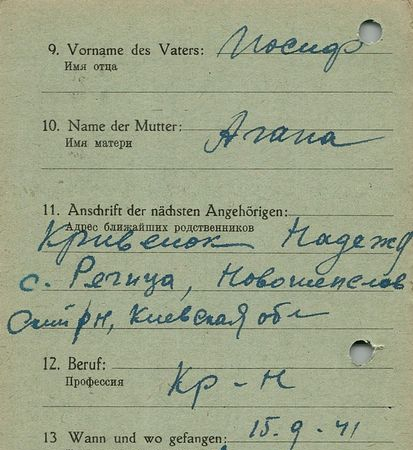 9. Vorname des Vaters: Иосиф
Имя отца
10. Name der Mutter: Агапа
Имя матери
11. Anschrift der nächsten Angehörigen:
Адрес ближайших родственников
Кривенок Надежд
с. Речица, Новошепелов
р-н, Киевская обл
12. Beruf: Кр-н
Профессия
13 Wann und wo gefangen: 15.9-41